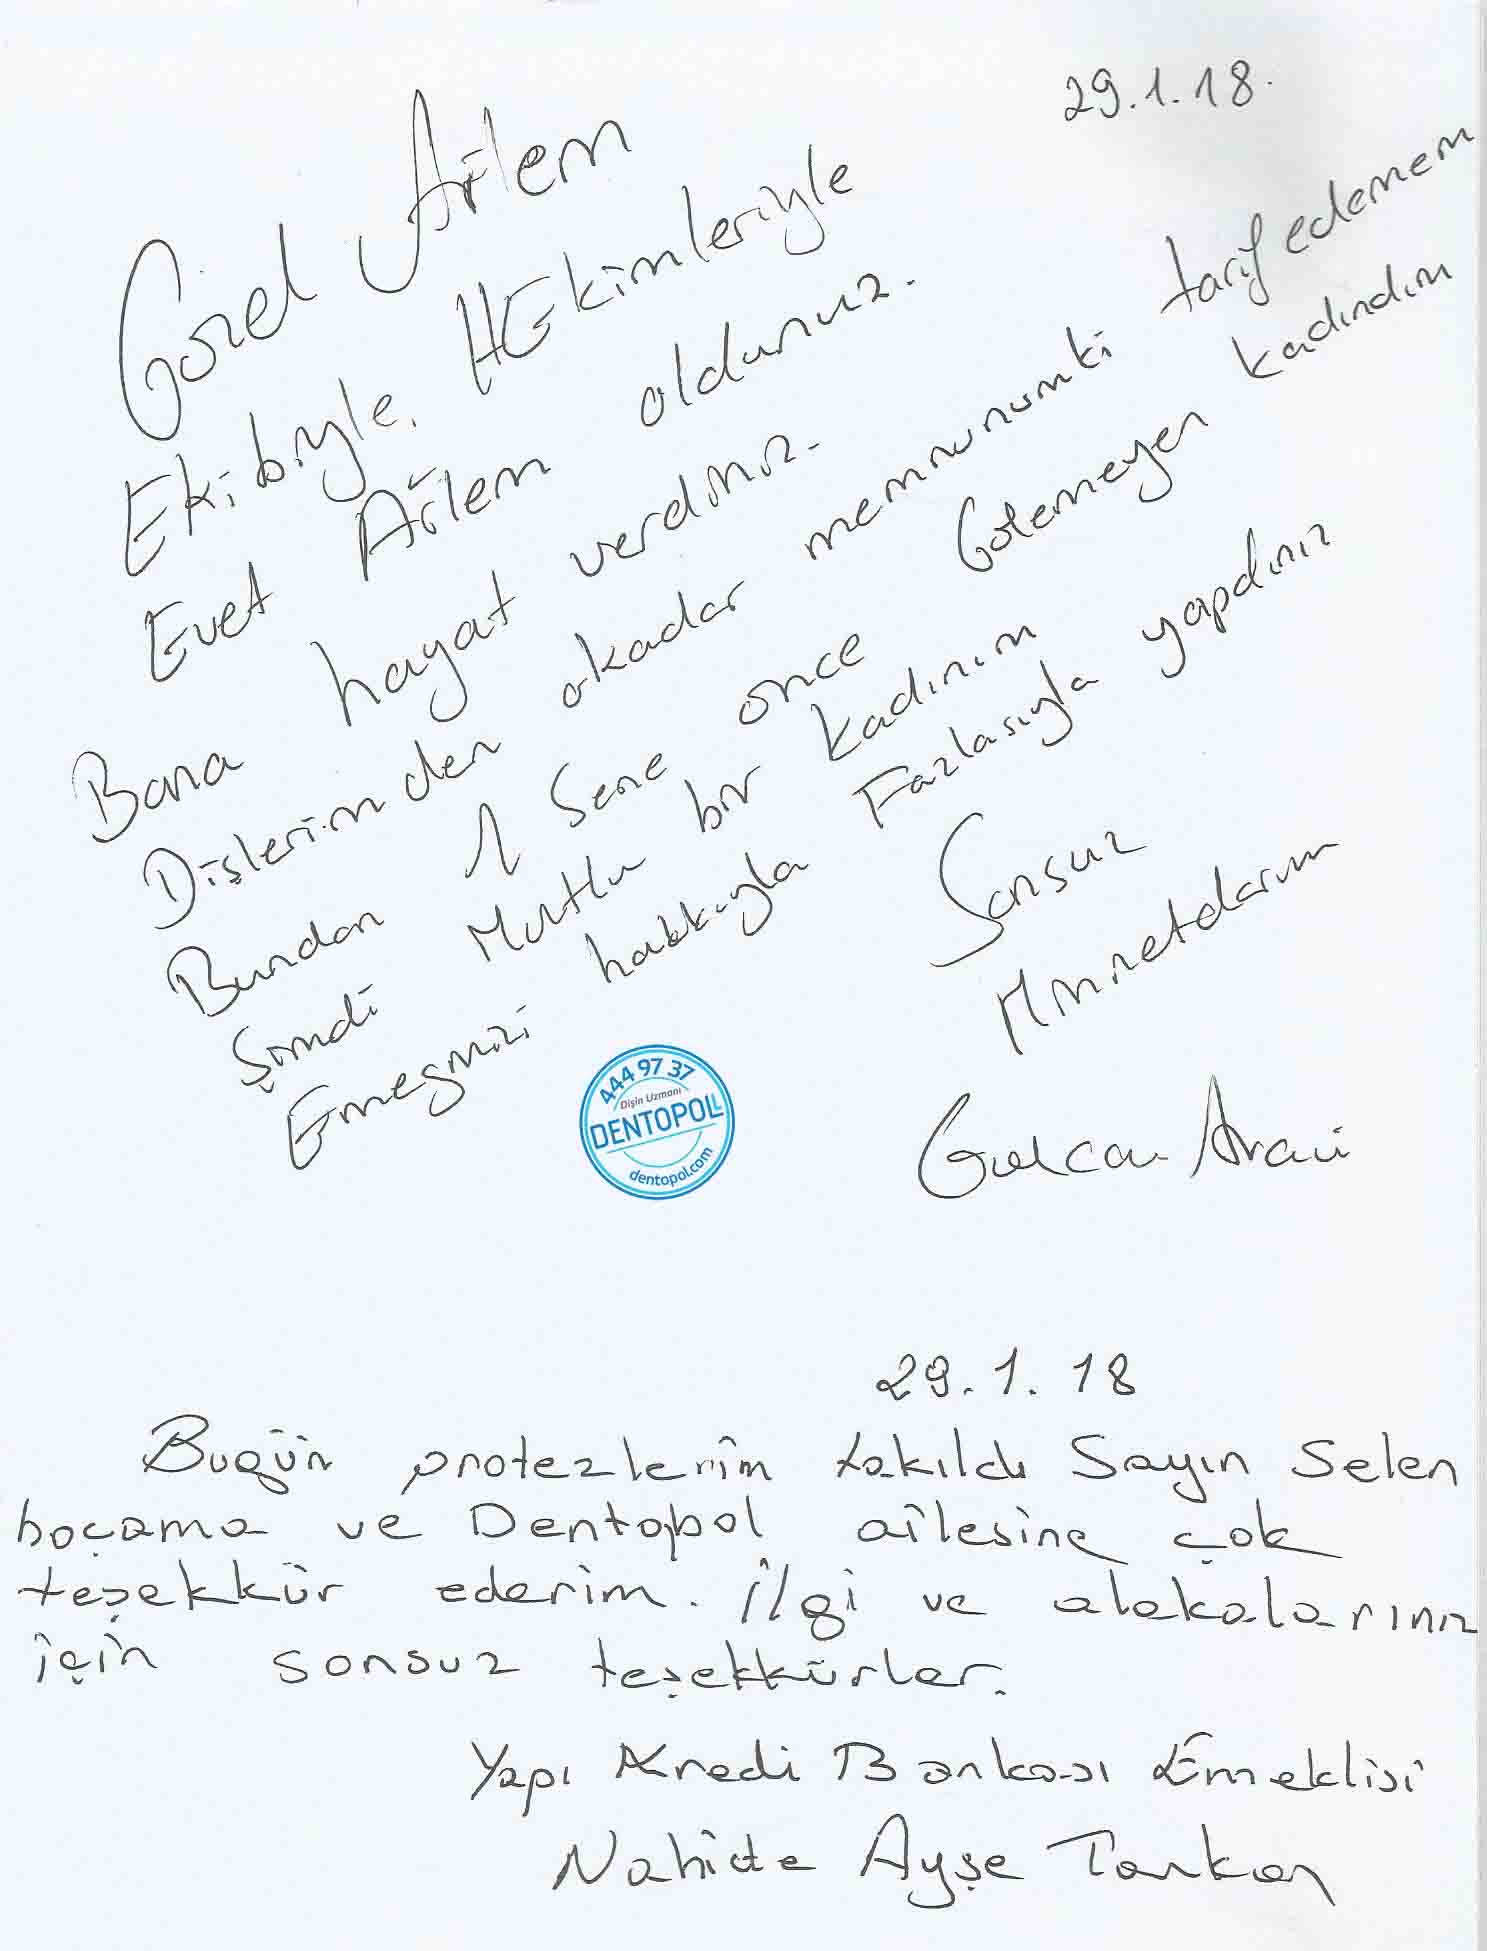 29.1.18.
Güzel Ailem
Ekibiyle. HEkimleriyle
Evet Ailem oldunuz.
Bana hayat verdiniz.
Dişlerimden okadar memnunumki tarif edemem
Bundan 1 Sene önce Gülemeyen kadındım
Şimdi Mutlu bir kadınım
Emeğinizi hakkıyla Fazlasıyla yapdınız
Sonsuz
Minnetdarım
444 97 37
Dişin Uzmanı
DENTOPOLL
dentopol.com
Gulcan
29.1.18
Bugün protezlerim takıldı Sayın Selen
hocama ve Dentopol ailesine çok
teşekkür ederim. İlgi ve alakalarınız
için sonsuz teşekkürler.
Yapı Kredi Bankası Emeklisi
Nahide Ayşe Tarkan